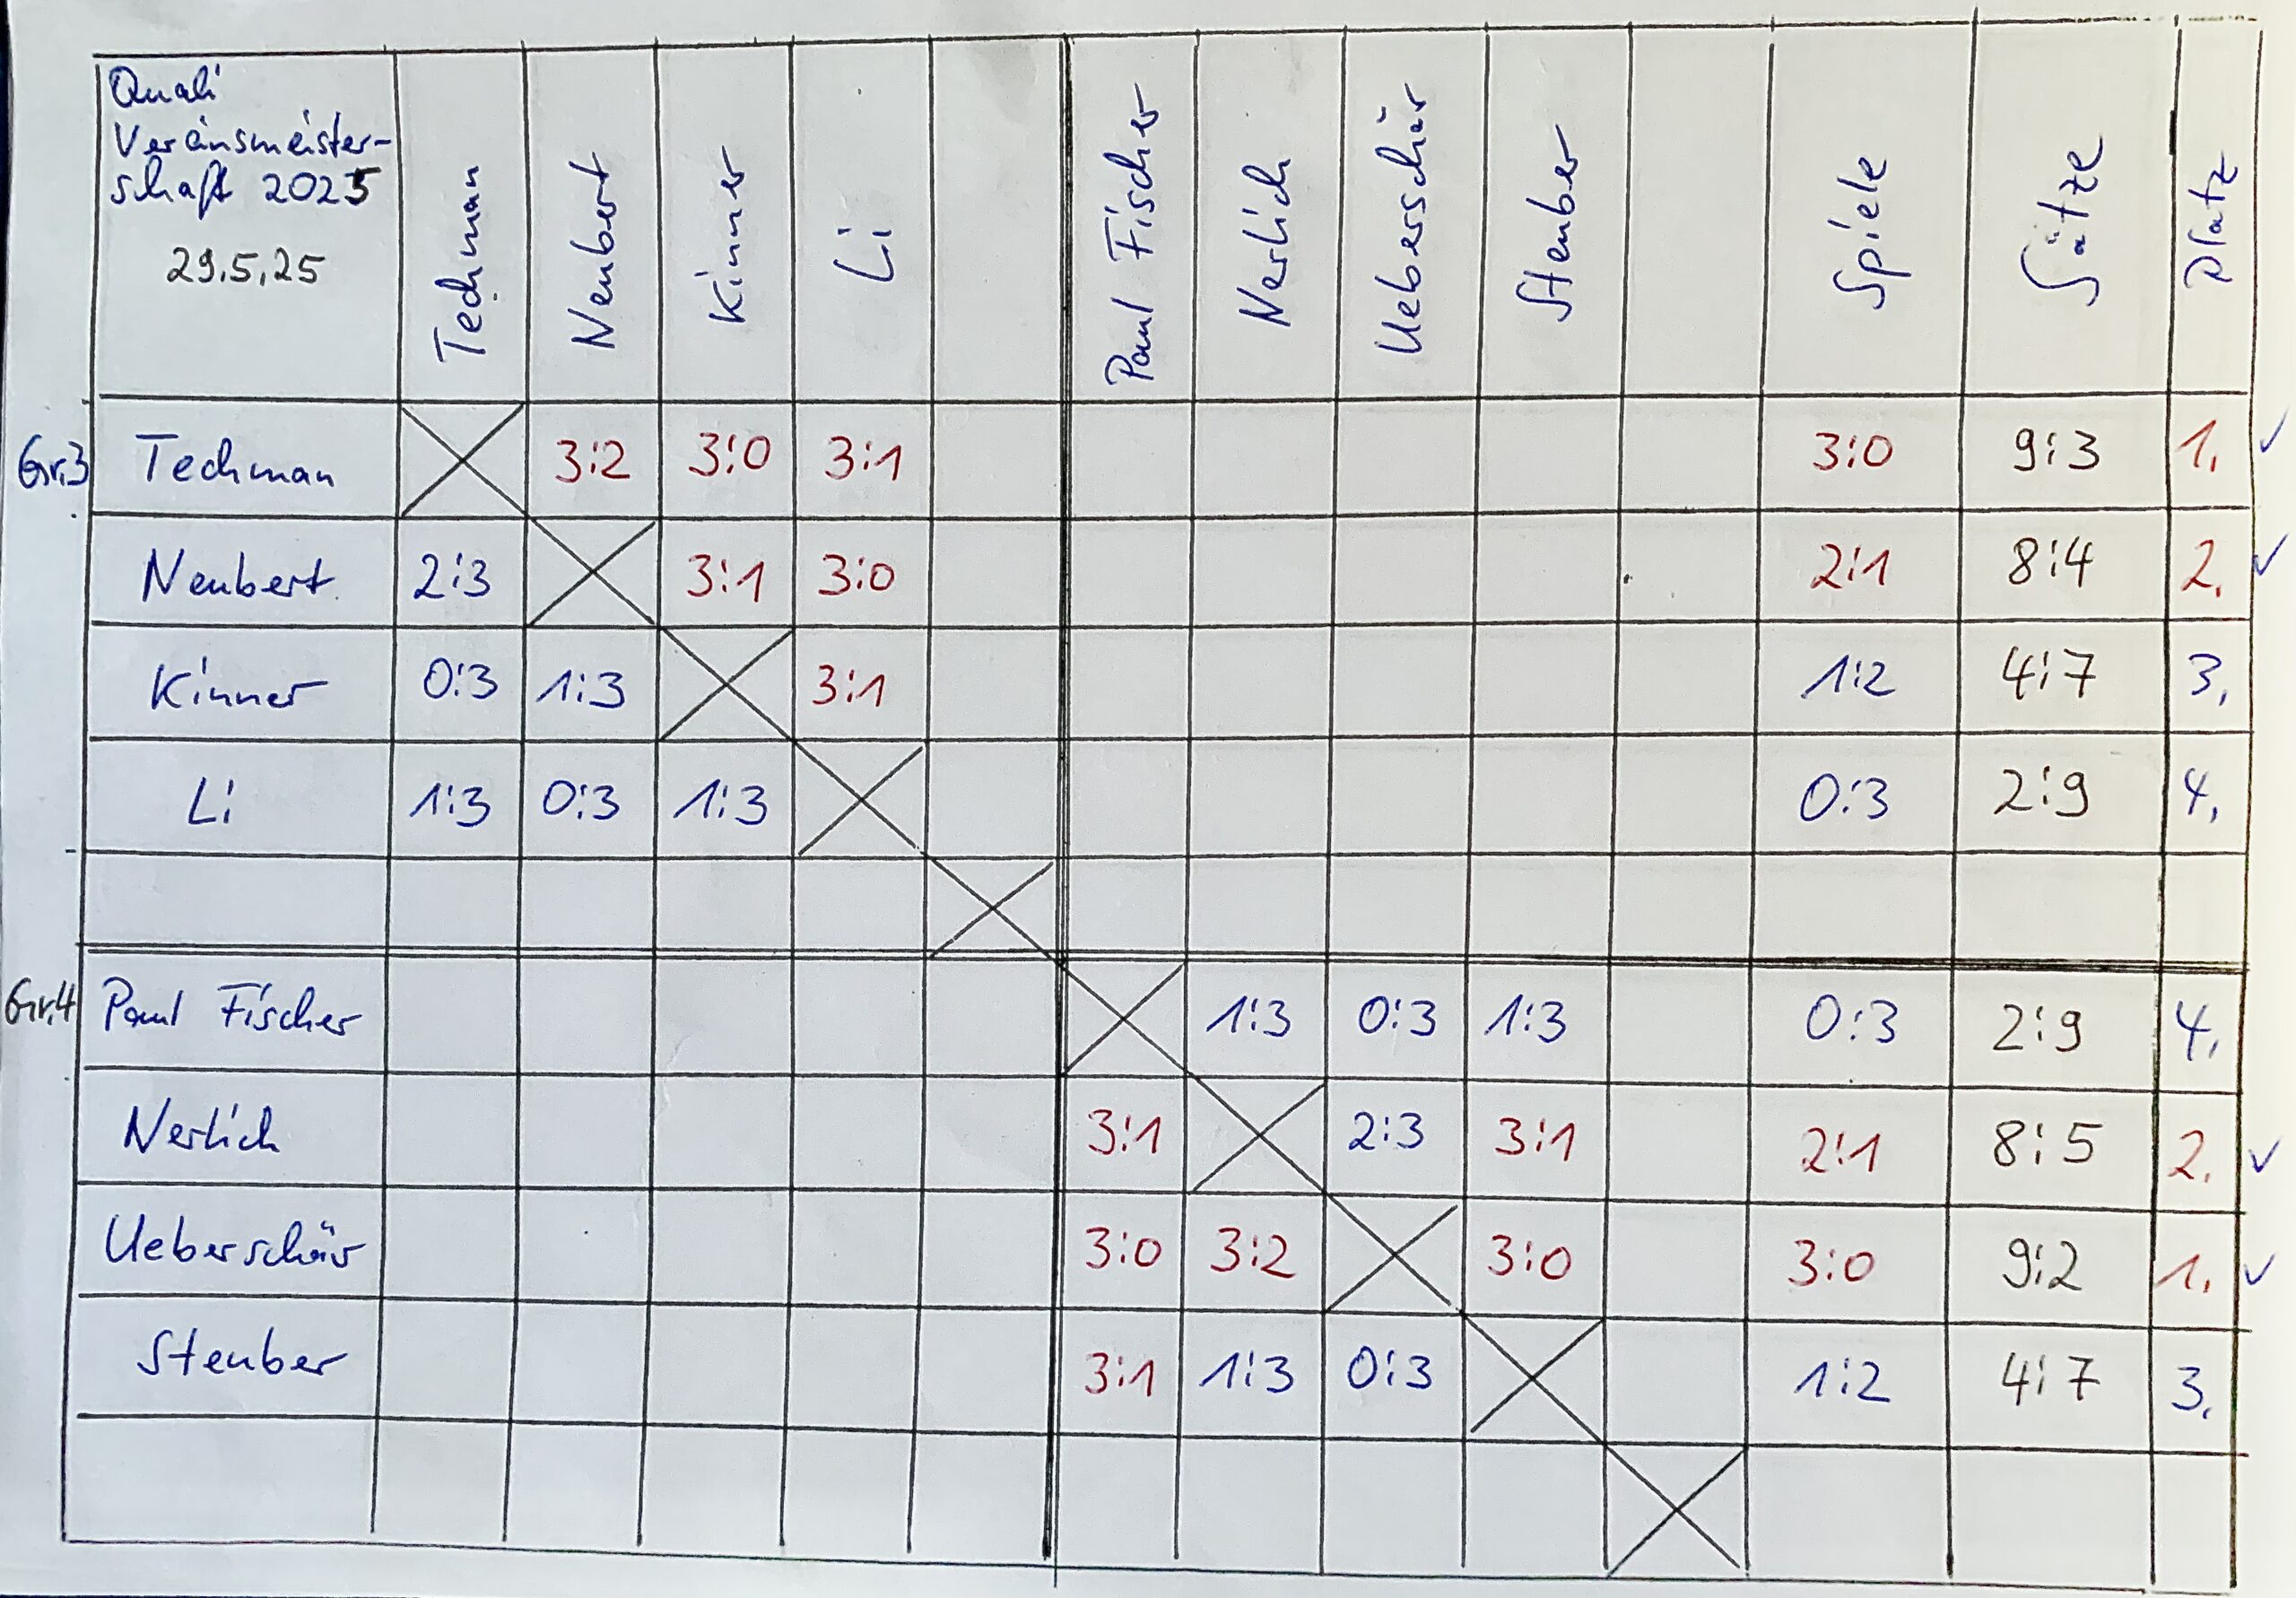 Quali
Vereinsmeister-
schaft 2025
29.5.25
Techman
Neubert
Kinner
Li
Paul Fischer
Nerlich
Ueberschär
Steuber
Spiele
Sätze
Platz
Gr.3 Techman 3:2 3:0 3:1 3:0 9:3 1. ✓
Neubert 2:3 3:1 3:0 2:1 8:4 2. ✓
Kinner 0:3 1:3 3:1 1:2 4:7 3.
Li 1:3 0:3 1:3 0:3 2:9 4.
Gr.4 Paul Fischer 1:3 0:3 1:3 0:3 2:9 4.
Nerlich 3:1 2:3 3:1 2:1 8:5 2. ✓
Ueberschär 3:0 3:2 3:0 3:0 9:2 1. ✓
Steuber 3:1 1:3 0:3 1:2 4:7 3.